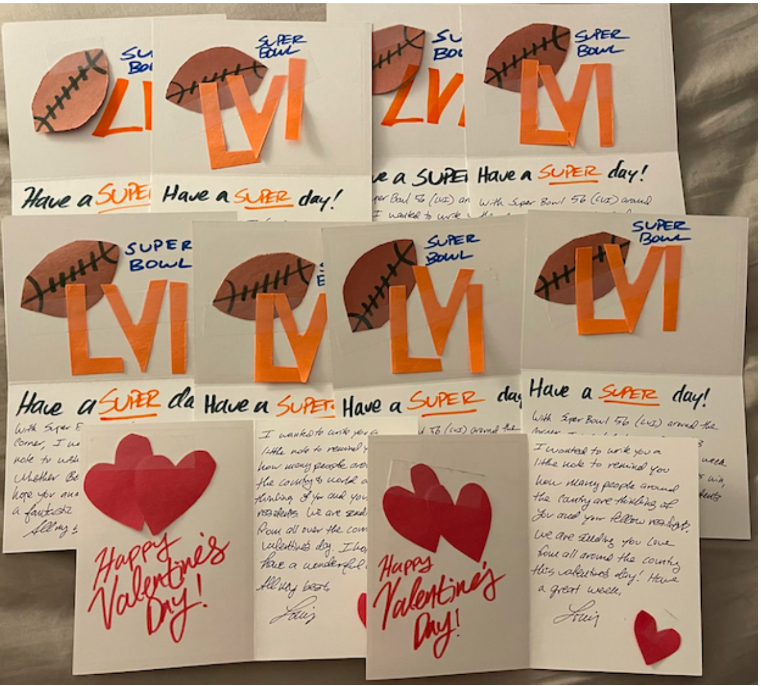 SUPER
BOWL
LVI
SUPER
BOWL
LVI
SUPER
BOWL
LVI
Have a SUPER
Have a SUPER day!
Have a SUPER day!
With Super Bowl 56 (LVI) around
I wanted to write
SUPER
BOWL
LVI
SUPER
BOWL
LVI
SUPER
BOWL
LVI
Have a SUPER da
With Super B
corner, I w
note to wish
Whether
hope you and
a fantastic
All my
Have a SUPER
Have a SUPER day
56 (LVI) around the
Have a SUPER day!
With Super Bowl 56 (LVI) around the
Happy
Valentine's
Day!
I wanted to write you a
little note to remind y
how many people aro
the country & world a
thinking of you and you
residents. We are send
from all over the coun
Valentine's day. I hop
have a wonderful
All my best
Louis
Happy
Valentine's
Day!
I wanted to write you a
little note to remind you
how many people around
the country are thinking of
you and your fellow residents.
We are sending you love
from all around the country
this valentine's day! Have
a great week,
Louis